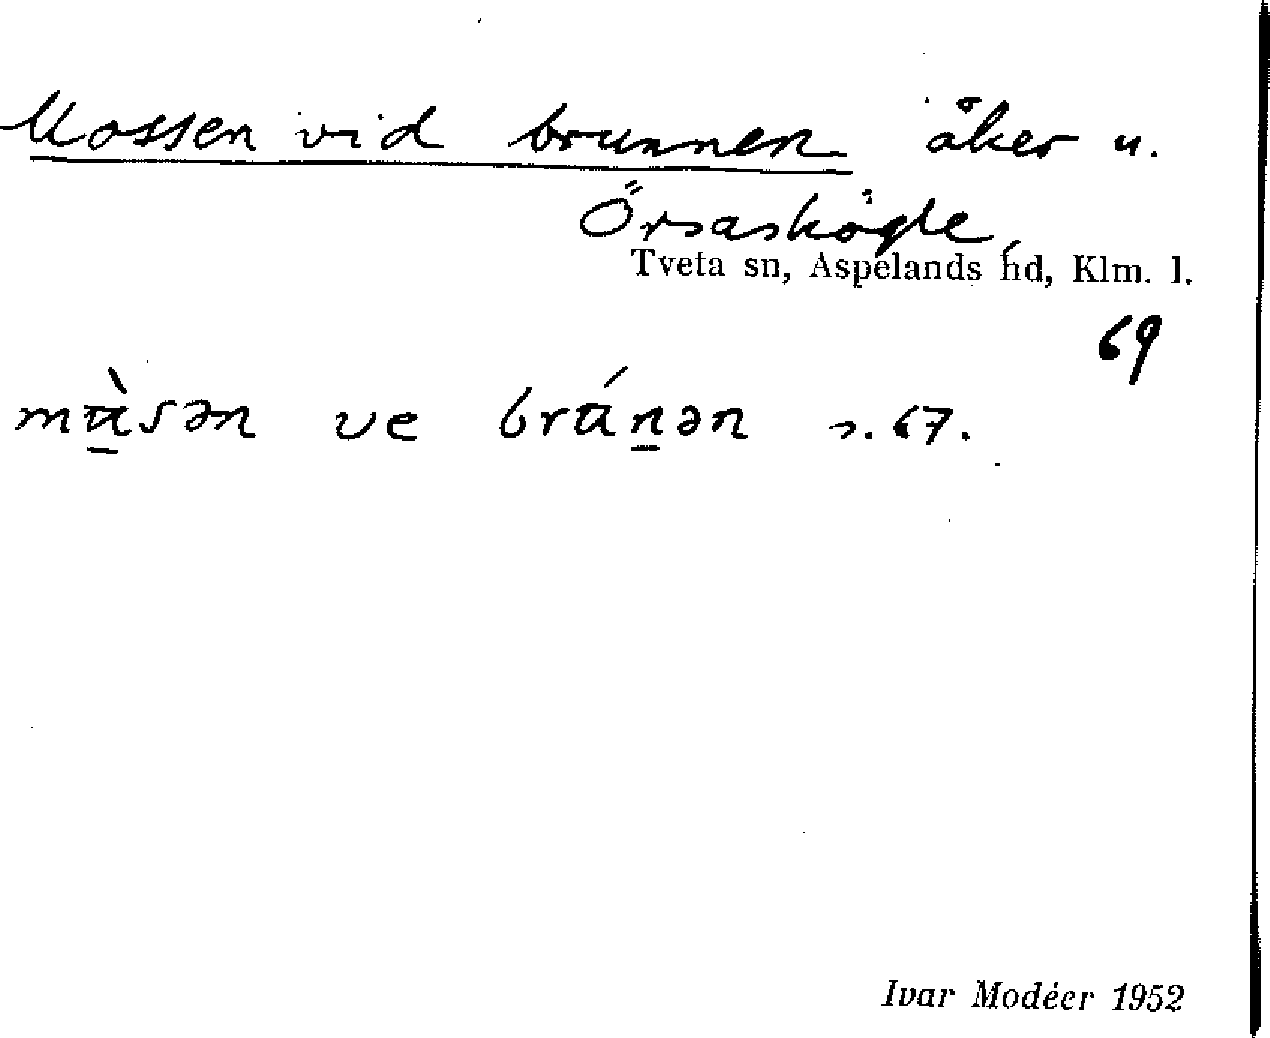 Mossen vid brunnen åker u.
Örsaskögle,
Tveta sn, Aspelands hd, Klm. l.
69
mùsən ve brúnən s. 67.
Ivar Modéer 1952